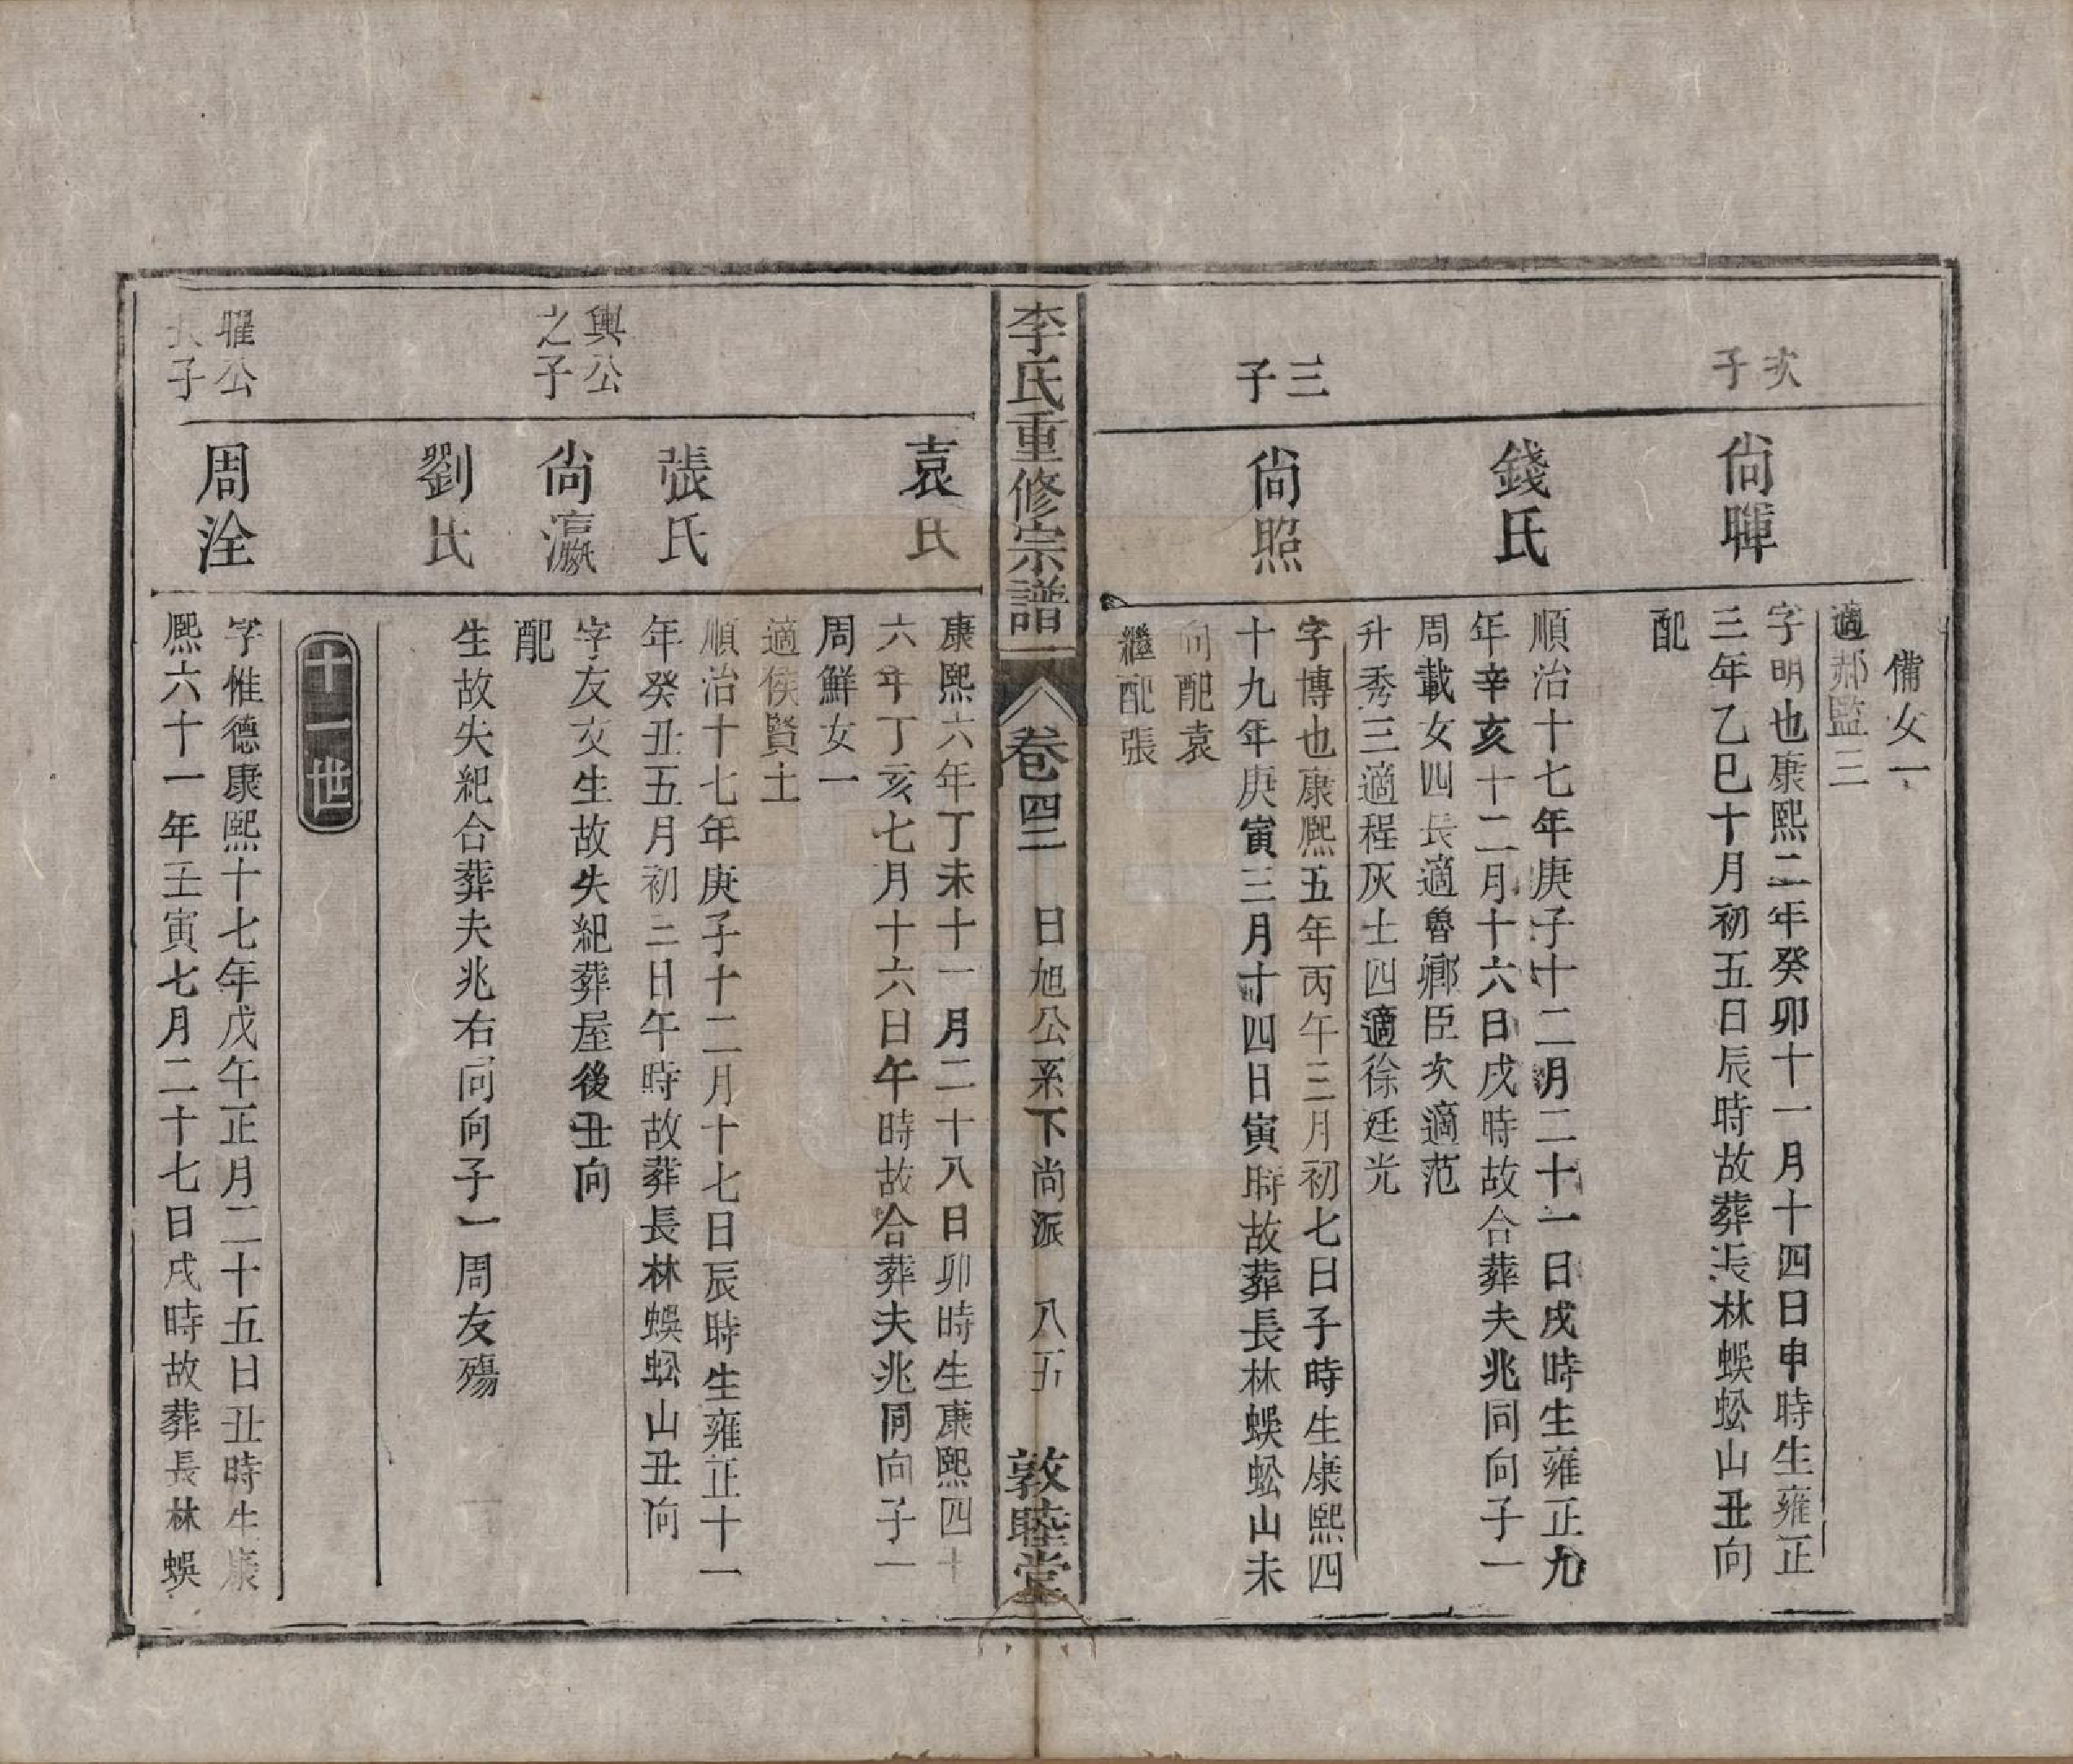 備女一
適郝監三
次
子
尙暉
字明也康熙二年癸卯十一月十四日申時生雍正
三年乙巳十月初五日辰時故葬長林蜈蚣山丑向
配
錢氏
順治十七年庚子十二月二十一日戌時生雍正九
年辛亥十二月十六日戌時故合葬夫兆同向子一
周載女四長適魯鄉臣次適范
升秀三適程灰士四適徐廷光
三
子
尙照
字博也康熙五年丙午三月初七日子時生康熙四
十九年庚寅三月十四日寅時故葬長林蜈蚣山未
向配袁
繼配張
李氏重修宗譜
卷四二 日旭公系下尙派 八五 敦睦堂
袁氏
康熙六年丁未十一月二十八日卯時生康熙四十
六年丁亥七月十六日午時故合葬夫兆同向子一
周鮮女一
適侯賢士
張氏
順治十七年庚子十二月十七日辰時生雍正十一
年癸丑五月初三日午時故葬長林蜈蚣山丑向
輿公
之子
尙瀛
字友文生故失紀葬屋後丑向
配
劉氏
生故失紀合葬夫兆右同向子一周友殤
十一世
暒公
長子
周洤
字惟德康熙十七年戊午正月二十五日丑時生康
熙六十一年壬寅七月二十七日戌時故葬長林蜈